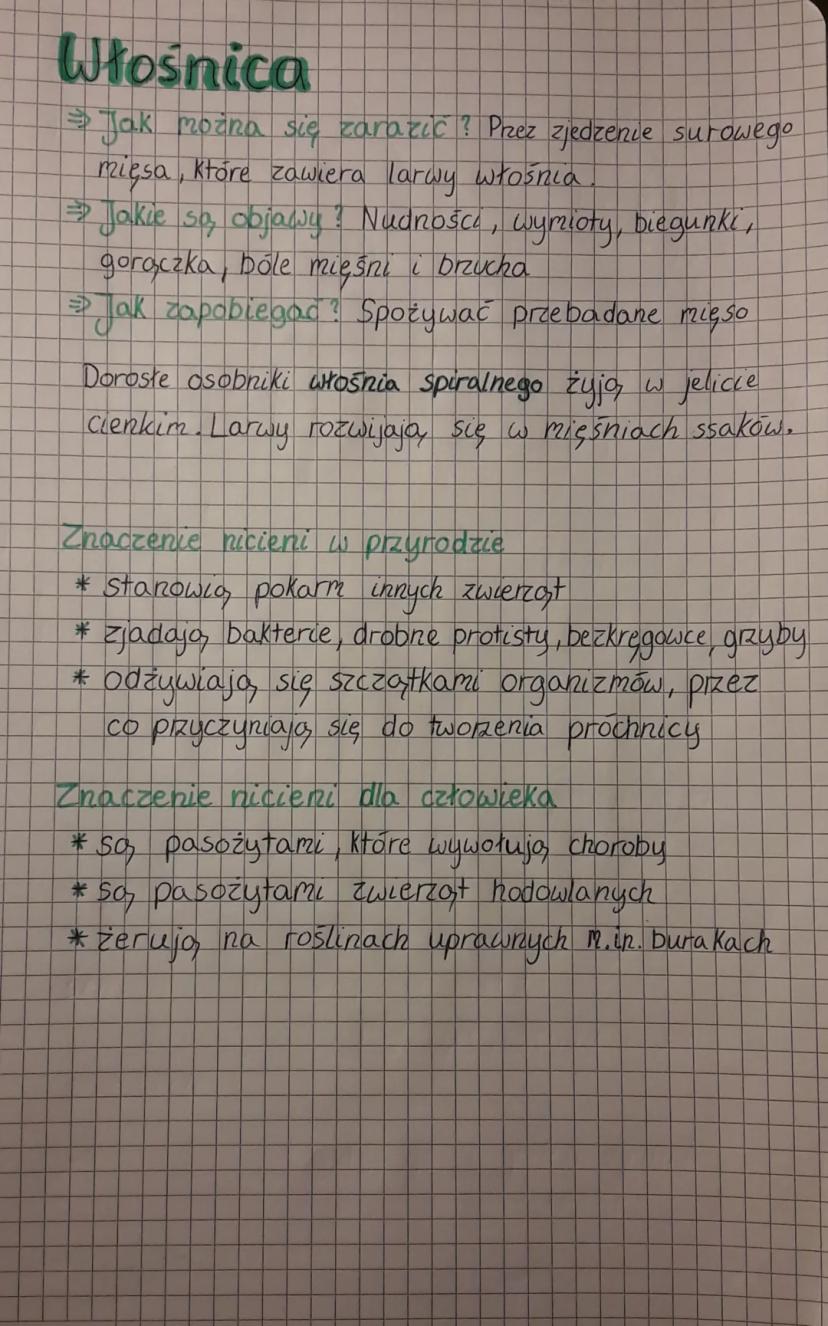 Włośnica
⇒ Jak można się zarazić? Przez zjedzenie surowego
mięsa, które zawiera larwy włośnia.
⇒ Jakie są objawy? Nudności, wymioty, biegunki,
gorączka, bóle mięśni i brzucha
⇒ Jak zapobiegać? Spożywać przebadane mięso
Dorosłe osobniki włośnia spiralnego żyją w jelicie
cienkim. Larwy rozwijają się w mięśniach ssaków.
Znaczenie nicieni w przyrodzie
* stanowią pokarm innych zwierząt
* zjadają bakterie, drobne protisty, bezkręgowce, grzyby
* odżywiają się szczątkami organizmów, przez
co przyczyniają się do tworzenia próchnicy
Znaczenie nicieni dla człowieka
* są pasożytami, które wywołują choroby
* są pasożytami zwierząt hodowlanych
* żerują na roślinach uprawnych m.in. burakach